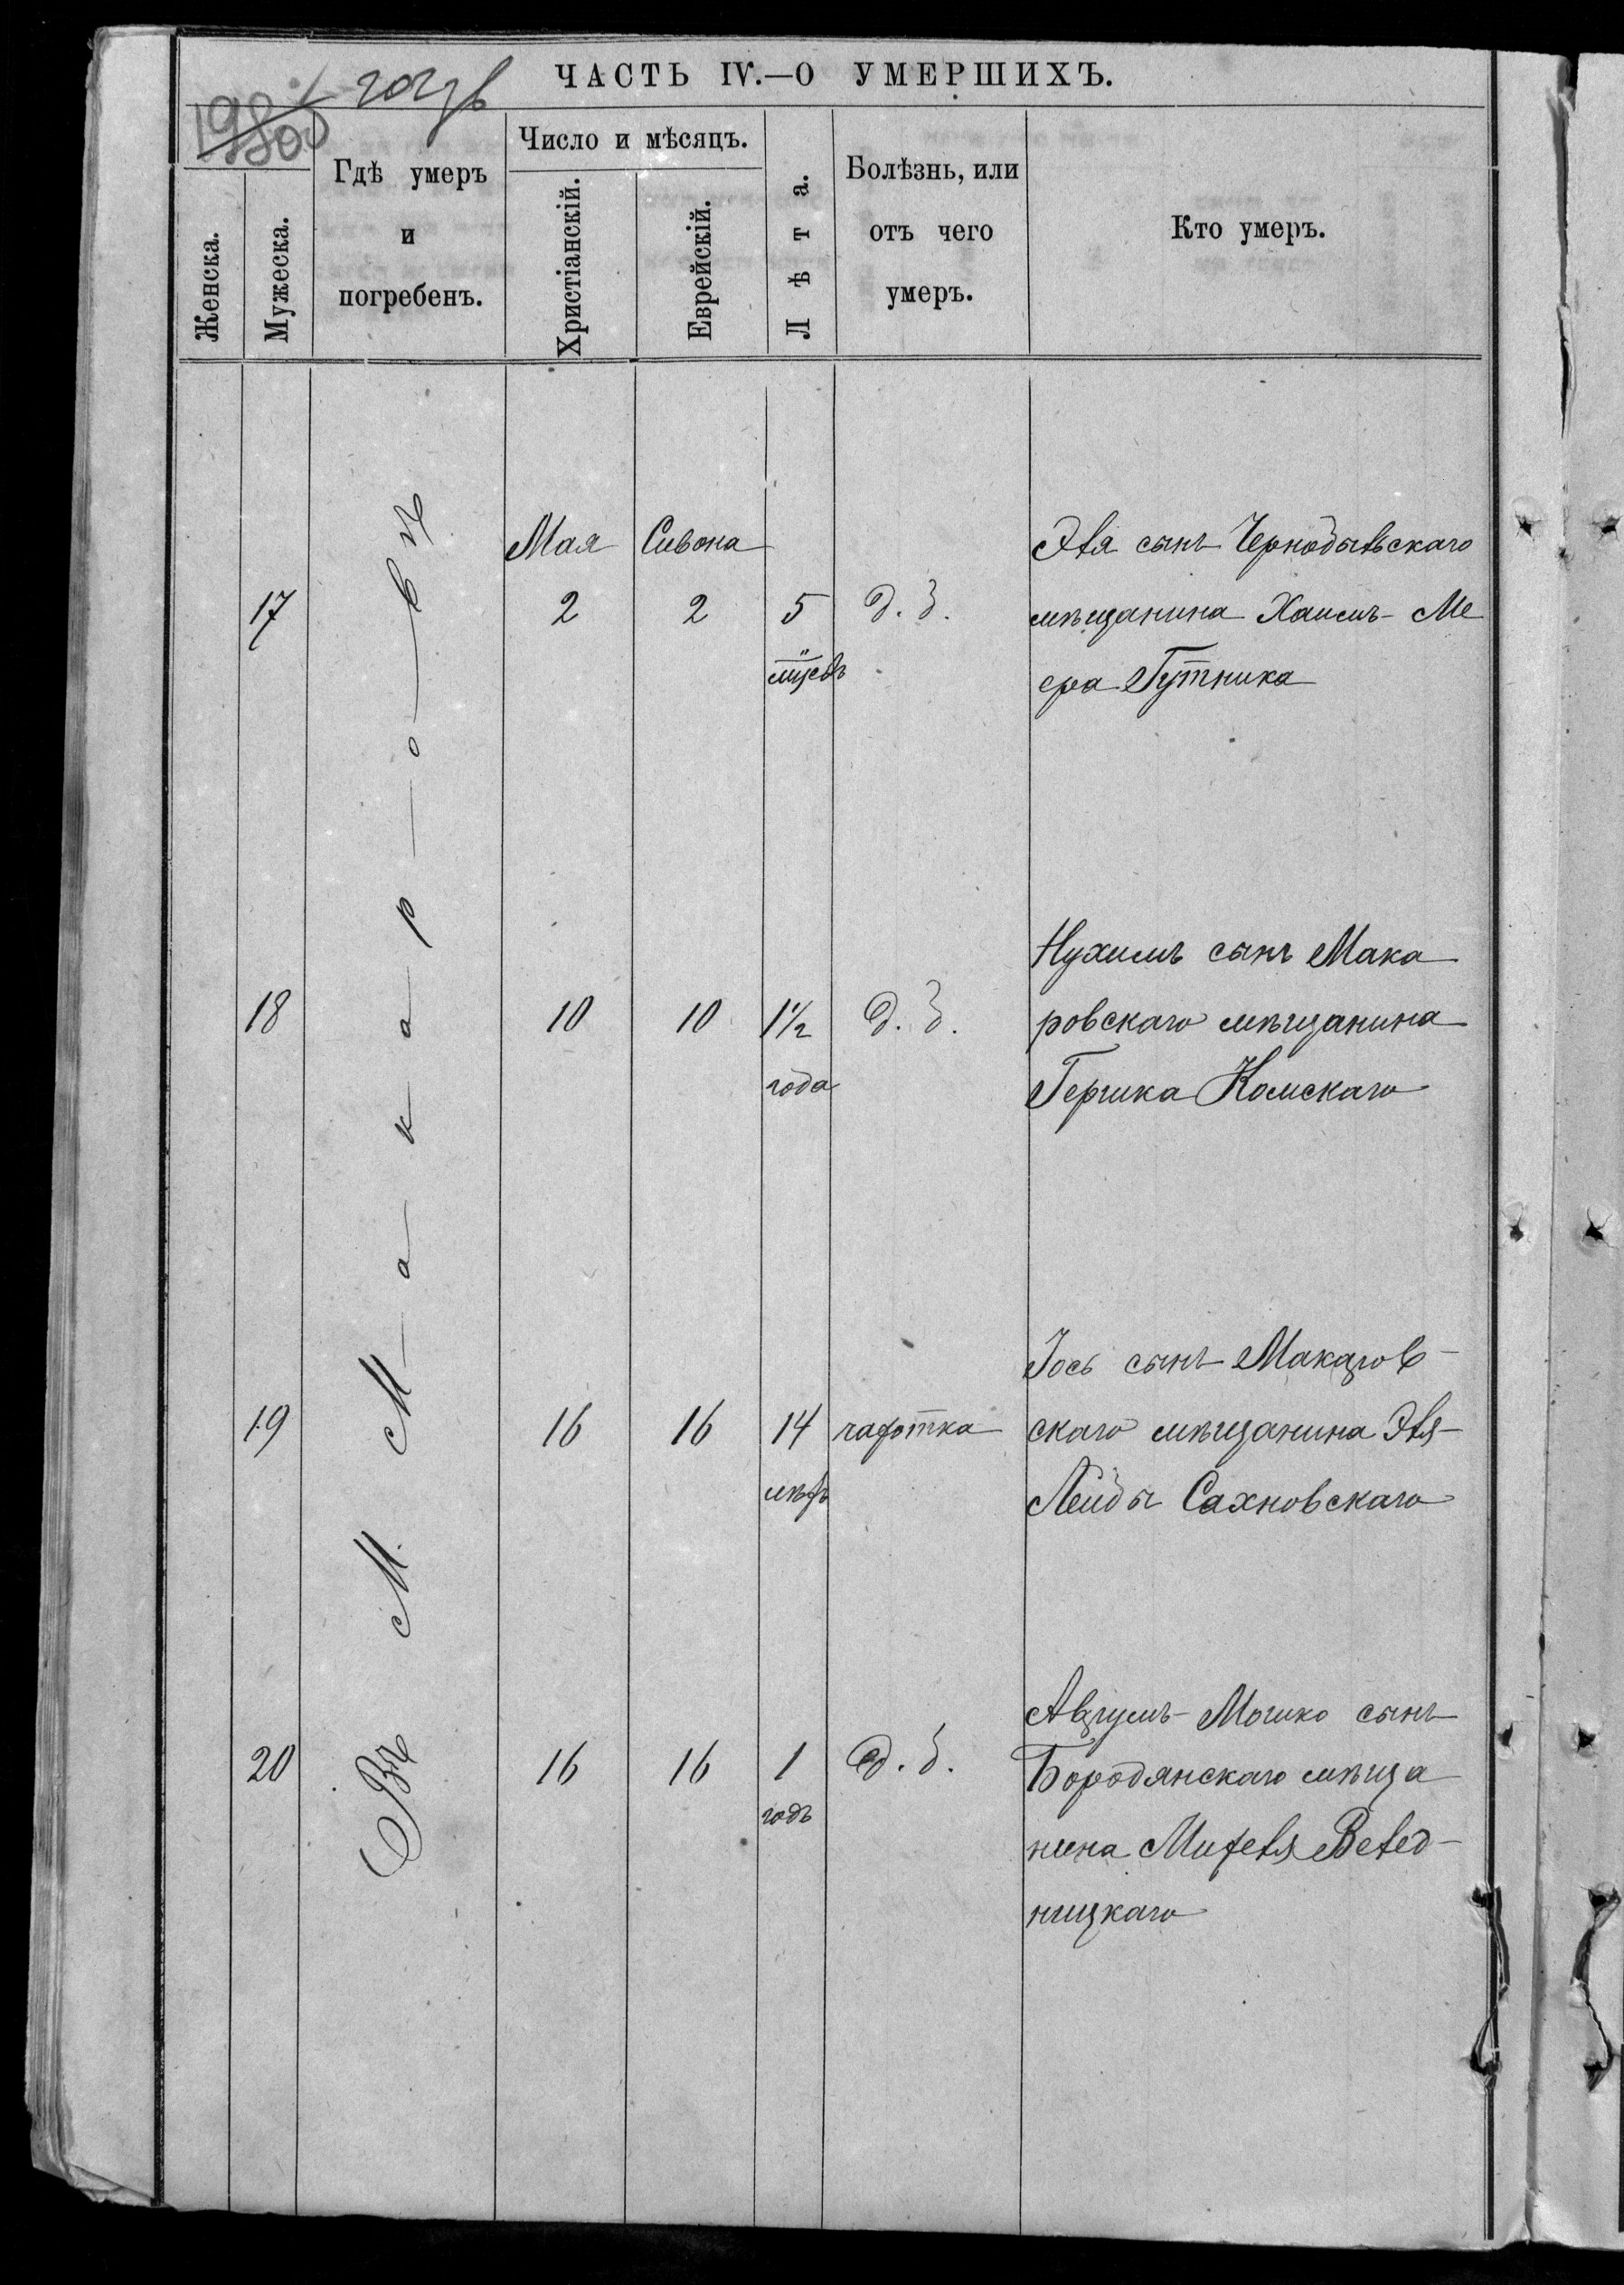 ЧАСТЬ IV.—О УМЕРШИХЪ.
Женска.
Мужеска.
Гдѣ умеръ
и
погребенъ.
Число и мѣсяцъ.
Христіанскій.
Еврейскій.
Лѣта.
Болѣзнь, или
отъ чего
умеръ.
Кто умеръ.
Въ М. Макаровѣ
Мая Сивона
17 2 2 5 д. б.
Эля сынъ Чернобыльскаго
мѣщанина Хаимъ-Ме
ера Гутника
18 10 10 1½ года д. б.
Нухимъ сынъ Мака
ровскаго мѣщанина
Гершка Комскаго
19 16 16 14 лѣтъ чахотка
Іось сынъ Макаров-
скаго мѣщанина Эля-
Лейбы Сахновскаго
20 16 16 1 годъ д. б.
Аврумъ-Мошко сынъ
Бородянскаго мѣща
нина
ницкаго